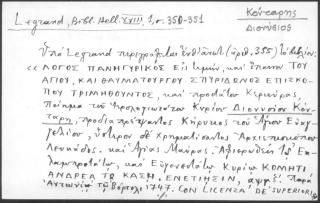 Legrand, Bibl. Hell. XVIII, 1, σ. 350-351
Κόνταρης
Διονύσιος
Ὑπὸ Legrand περιγράφεται ἐνθ' ἀνωτ. (ἀριθ. 355) τὸ βιβλίον:
«ΛΟΓΟΣ ΠΑΝΗΓΥΡΙΚΟΣ Εἰς τιμὴν, καὶ ἔπαινον ΤΟΥ
ΑΓΙΟΥ, ΚΑΙ ΘΑΥΜΑΤΟΥΡΓΟΥ ΣΠΥΡΙΔΩΝΟΣ ΕΠΙΣΚΟ
ΠΟΥ ΤΡΙΜΗΘΟΥΝΤΟΣ, καὶ προστάτου Κερκύρας,
Ποίημα τοῦ Κυρίου Διονυσίου Κόν
ταρη, Κήρυκος τοῦ Ἁγίου Εὐαγ
γελίου, ὕστερον δὲ Χρηματίσαντος Ἀρχιεπισκόπου
Λευκάδος, καὶ Ἁγίας Μαύρας, Ἀφιερωθεὶς τῷ Ἐκ
λαμπροτάτῳ, καὶ Εὐγενεστάτῳ Κυρίῳ ΚΟΜΗΤΙ
ΑΝΔΡΕΑ ΤΩ ΚΑΣΗ, ΕΝΕΤΙΗΣΙΝ, αψμζ΄ παρὰ
Ἀντωνίῳ τῷ Βόρτολι 1747. CON LICENZA DE' SUPERIORI»